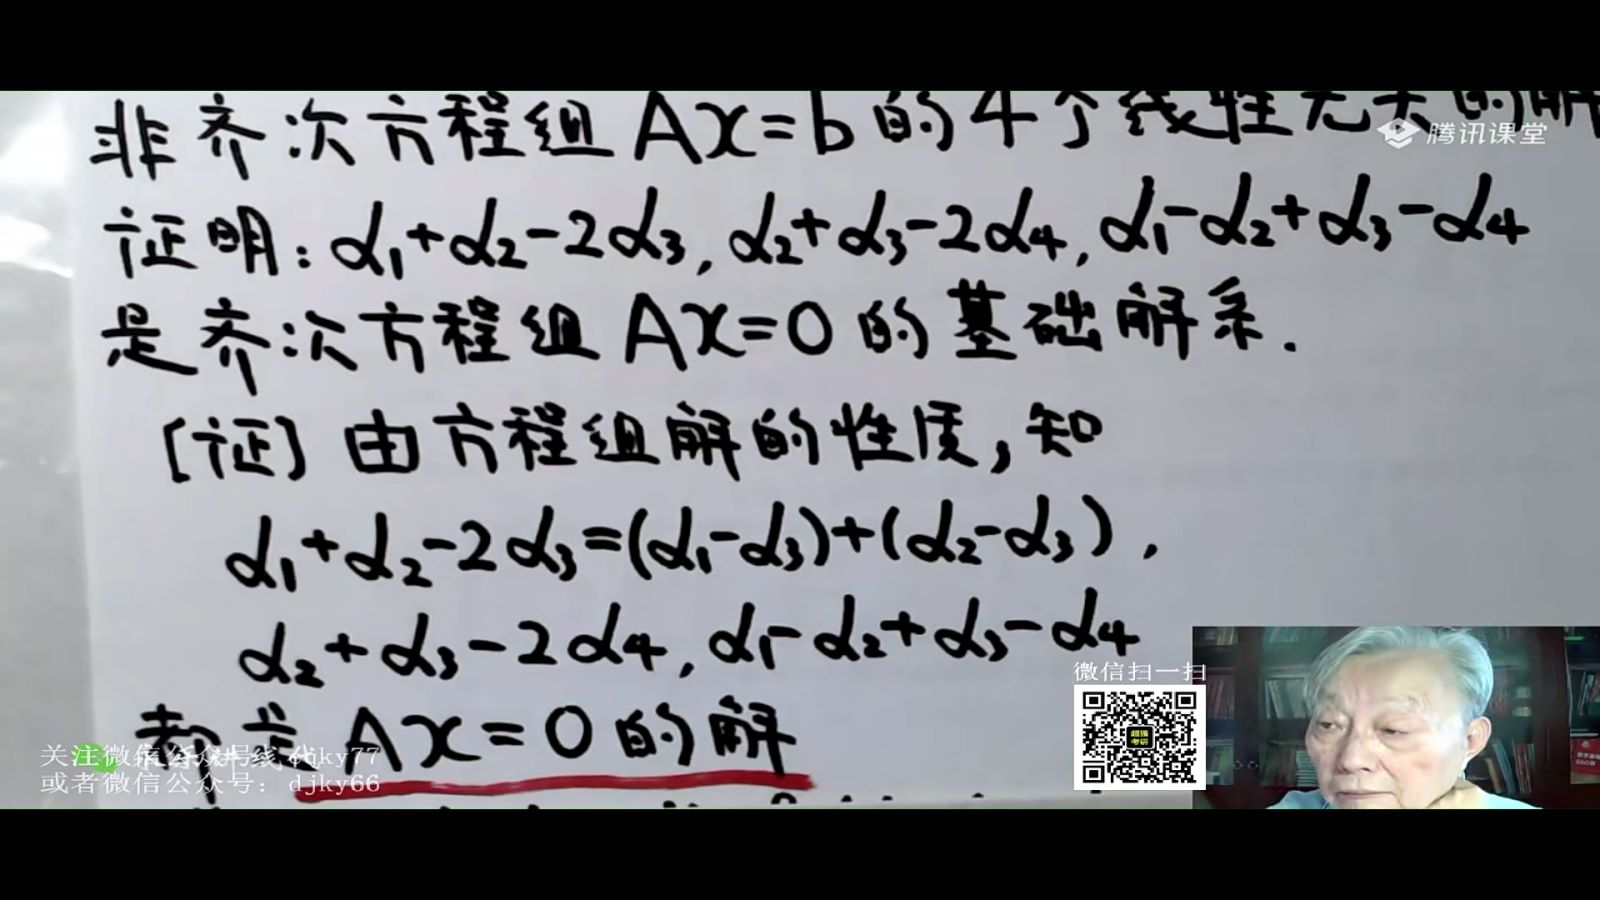 非齐次方程组 Ax=b 的4个线性无关的解
腾讯课堂
证明: α₁+α₂-2α₃, α₂+α₃-2α₄, α₁-α₂+α₃-α₄
是齐次方程组 Ax=0 的基础解系.
[证] 由方程组解的性质,知
α₁+α₂-2α₃=(α₁-α₃)+(α₂-α₃),
α₂+α₃-2α₄, α₁-α₂+α₃-α₄
微信扫一扫
都是 Ax=0 的解
关注微信公众号: cqky77
或者微信公众号: djky66